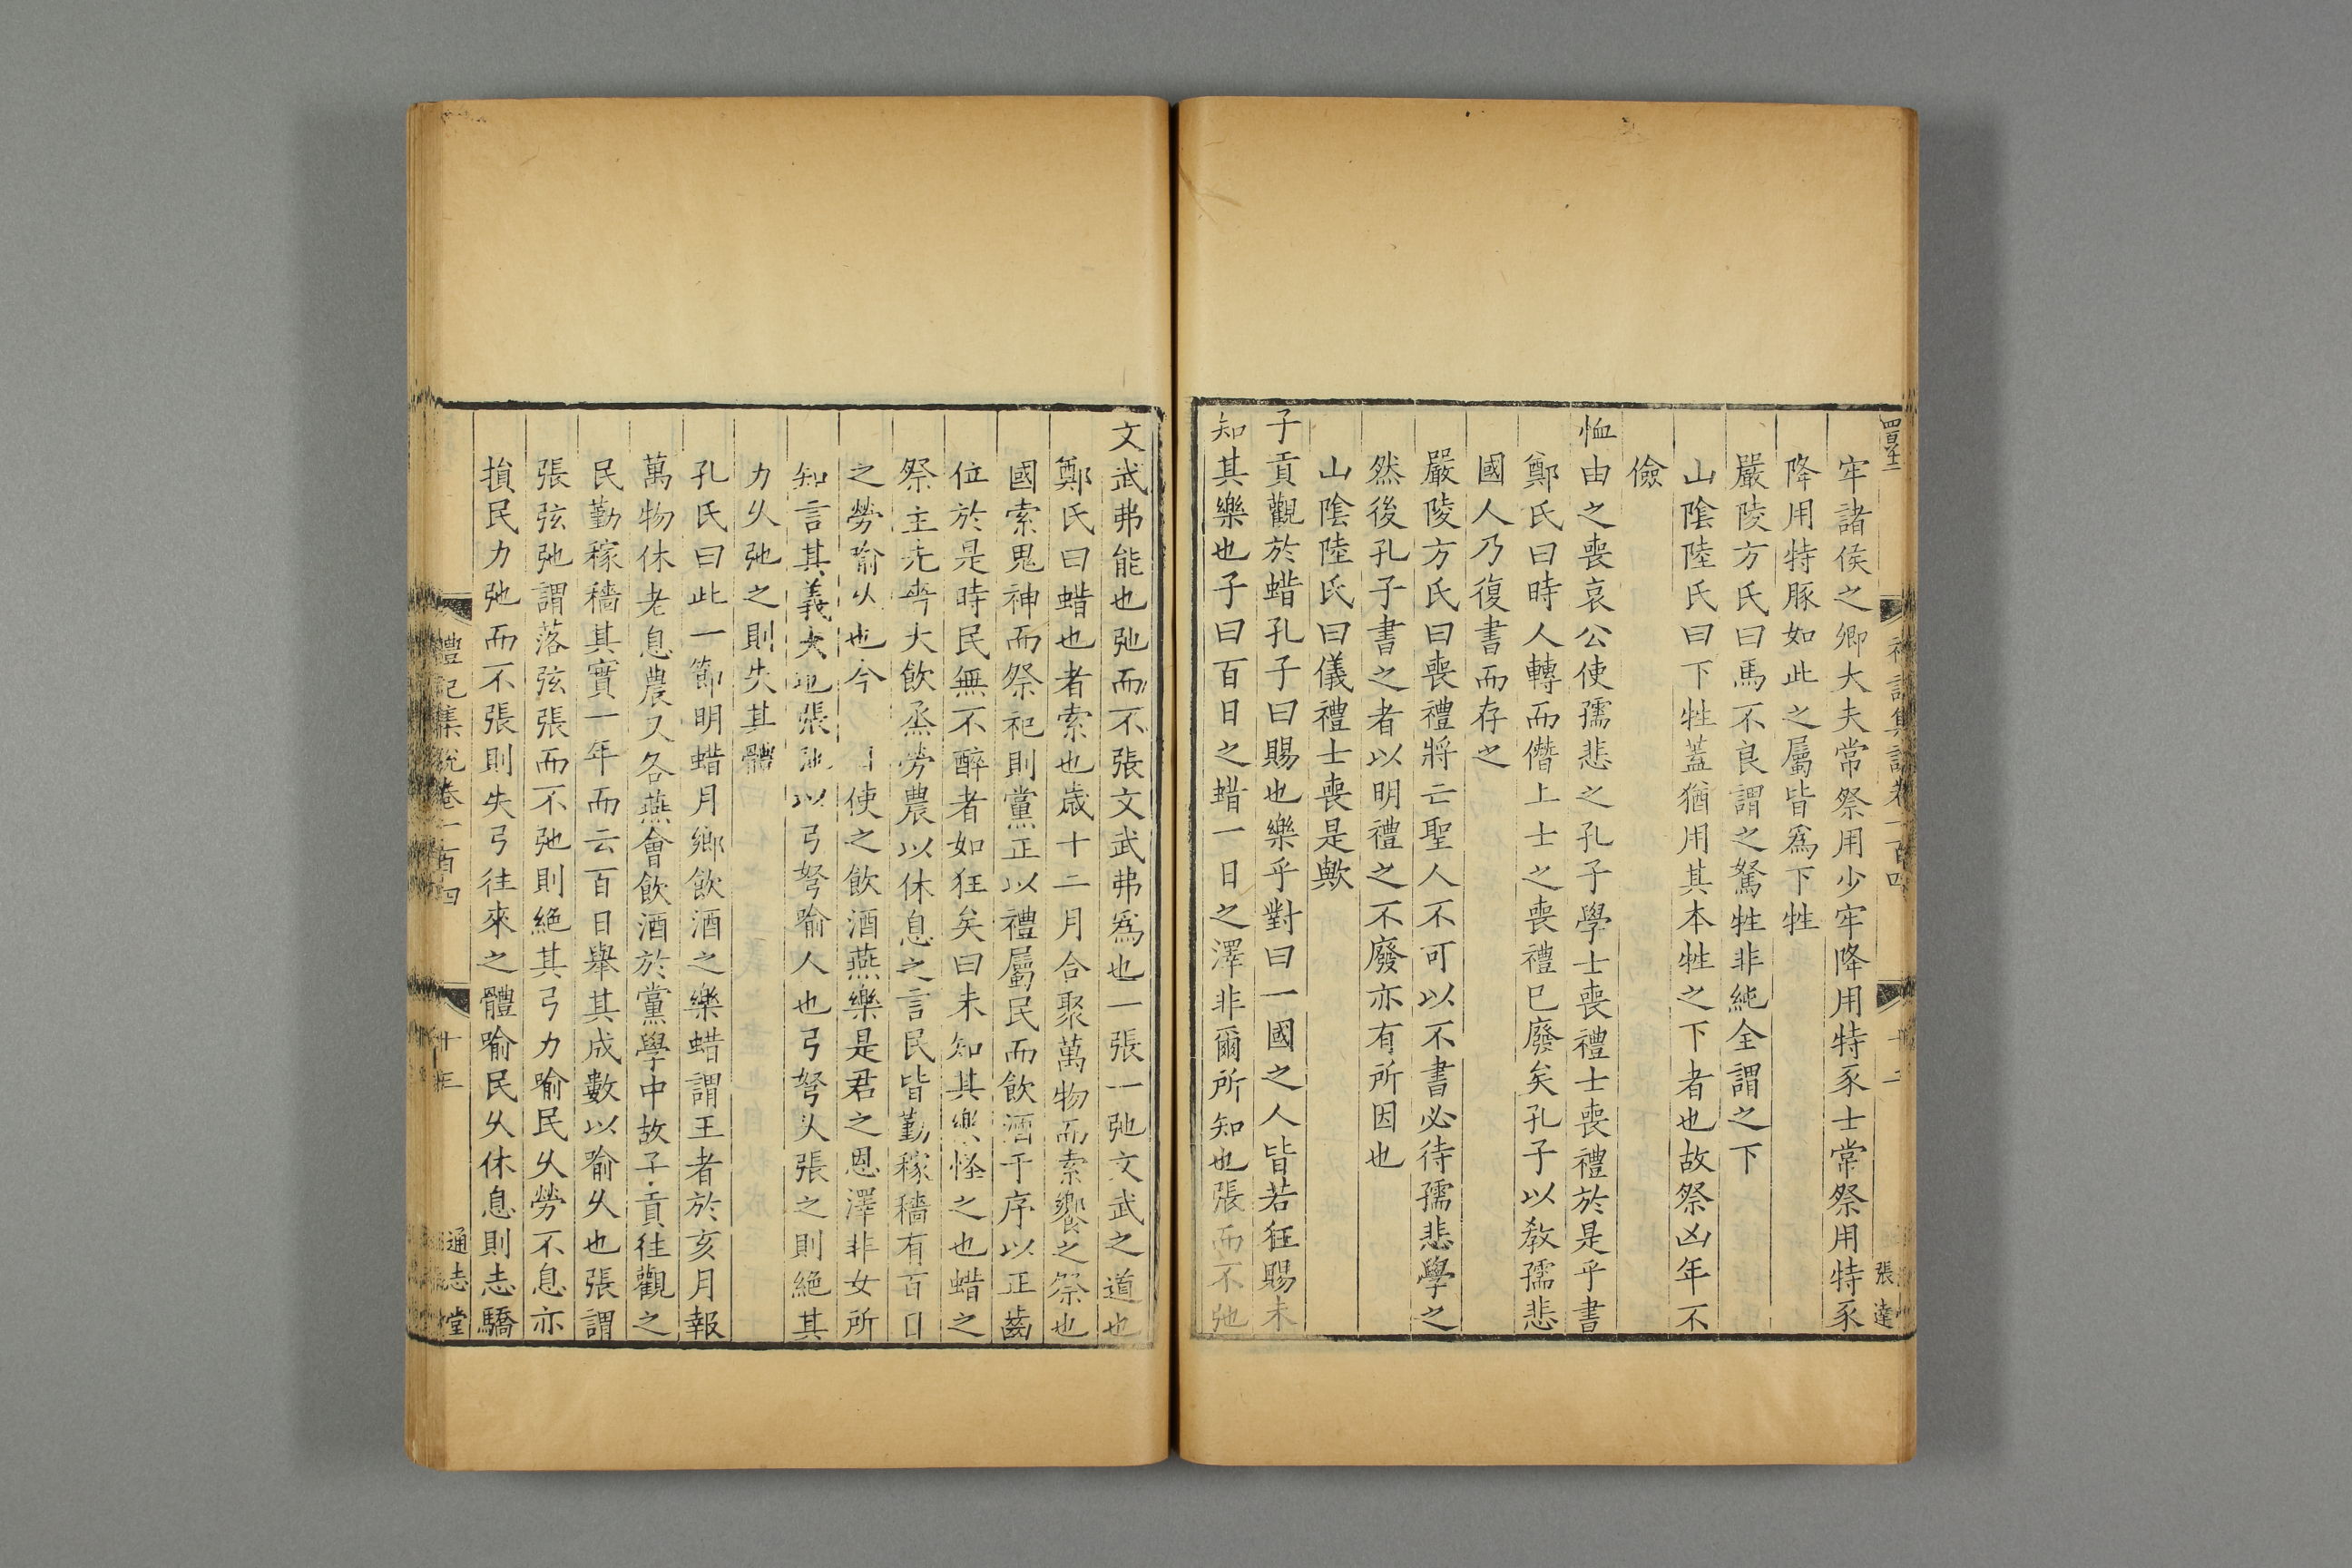 牢諸侯之卿大夫常祭用少牢降用特豕士常祭用特豕
降用特豚如此之屬皆爲下牲
嚴陵方氏曰馬不良謂之駑牲非純全謂之下
山陰陸氏曰下牲蓋猶用其本牲之下者也故祭凶年不
儉
恤由之喪哀公使孺悲之孔子學士喪禮士喪禮於是乎書
鄭氏曰時人轉而僭上士之喪禮已廢矣孔子以敎孺悲
國人乃復書而存之
嚴陵方氏曰喪禮將亡聖人不可以不書必待孺悲學之
然後孔子書之者以明禮之不廢亦有所因也
山陰陸氏曰儀禮士喪是歟
子貢觀於蜡孔子曰賜也樂乎對曰一國之人皆若狂賜未
知其樂也子曰百日之蜡一日之澤非爾所知也張而不弛
文武弗能也弛而不張文武弗爲也一張一弛文武之道也
鄭氏曰蜡也者索也歲十二月合聚萬物而索饗之祭也
國索鬼神而祭祀則黨正以禮屬民而飲酒于序以正齒
位於是時民無不醉者如狂矣曰未知其樂怪之也蜡之
祭主先嗇大飲烝勞農以休息之言民皆勤稼穡有百日
之勞喻久也今一日使之飲酒燕樂是君之恩澤非女所
知言其義大也張弛以弓弩喻人也弓弩久張之則絶其
力久弛之則失其體
孔氏曰此一節明蜡月鄉飲酒之樂蜡謂王者於亥月報
萬物休老息農又各燕會飲酒於黨學中故子貢往觀之
民勤稼穡其實一年而云百日舉其成數以喻久也張謂
張弦弛謂落弦張而不弛則絶其弓力喻民久勞不息亦
損民力弛而不張則失弓往來之體喻民久休息則志驕
禮記集說卷一百四
十三
通志堂